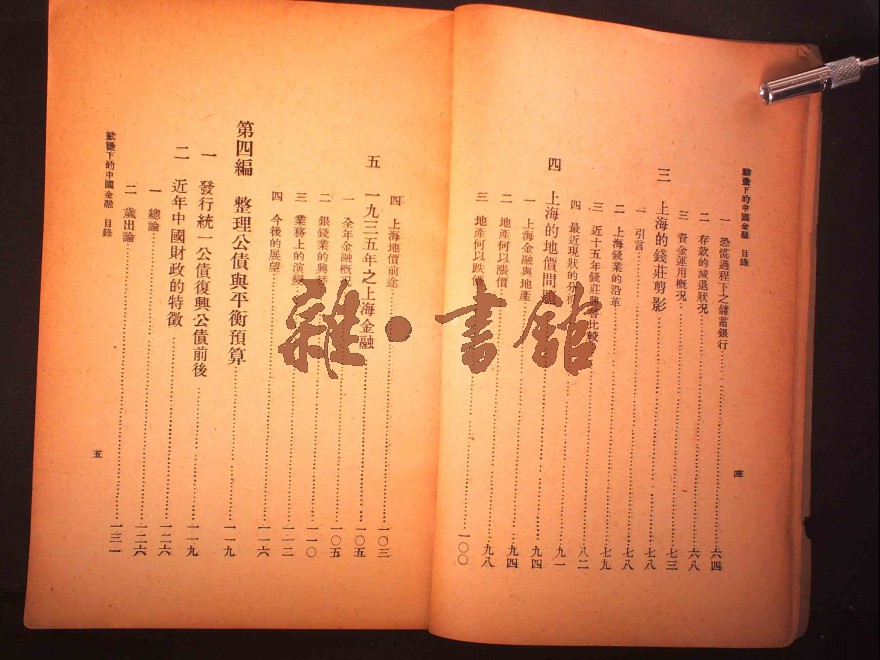 動盪下的中國金融　目錄
一　恐慌過程下之儲蓄銀行……六四
二　存款的減退狀况……六八
三　資金運用概况……七三
三　上海的錢莊剪影……七八
一　引言……七八
二　上海錢業的沿革……七九
三　近十五年錢莊興替比較……八二
四　最近現狀的分析……九一
四　上海的地價問題……九四
一　上海金融與地產……九四
二　地產何以漲價……九八
三　地產何以跌價……一〇〇
四
動盪下的中國金融　目錄
四　上海地價前途……一〇三
五　一九三五年之上海金融……一〇五
一　全年金融概况……一〇五
二　銀錢業的興替……一一〇
三　業務上的演變……一一二
四　今後的展望……一一六
第四編　整理公債與平衡預算……一一九
一　發行統一公債復興公債前後……一一九
二　近年中國財政的特徵……一二六
一　總論……一二六
二　歲出論……一三一
五
雜・書館